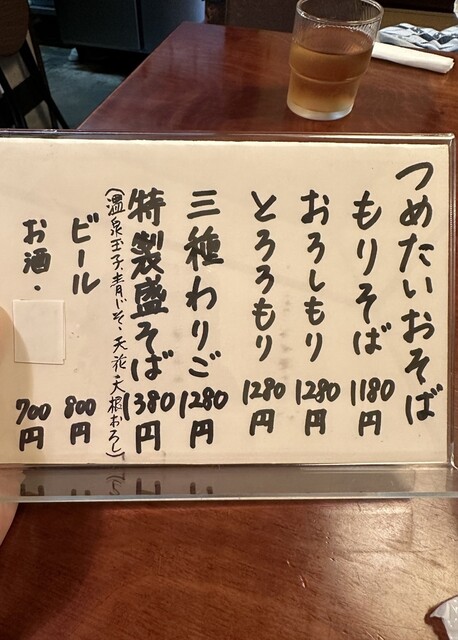 つめたいおそば
もりそば 1180円
おろしもり 1280円
とろろもり 1280円
三種わりご 1280円
特製盛そば 1380円
(温泉玉子、青じそ、天花、大根おろし)
ビール 800円
お酒. 700円